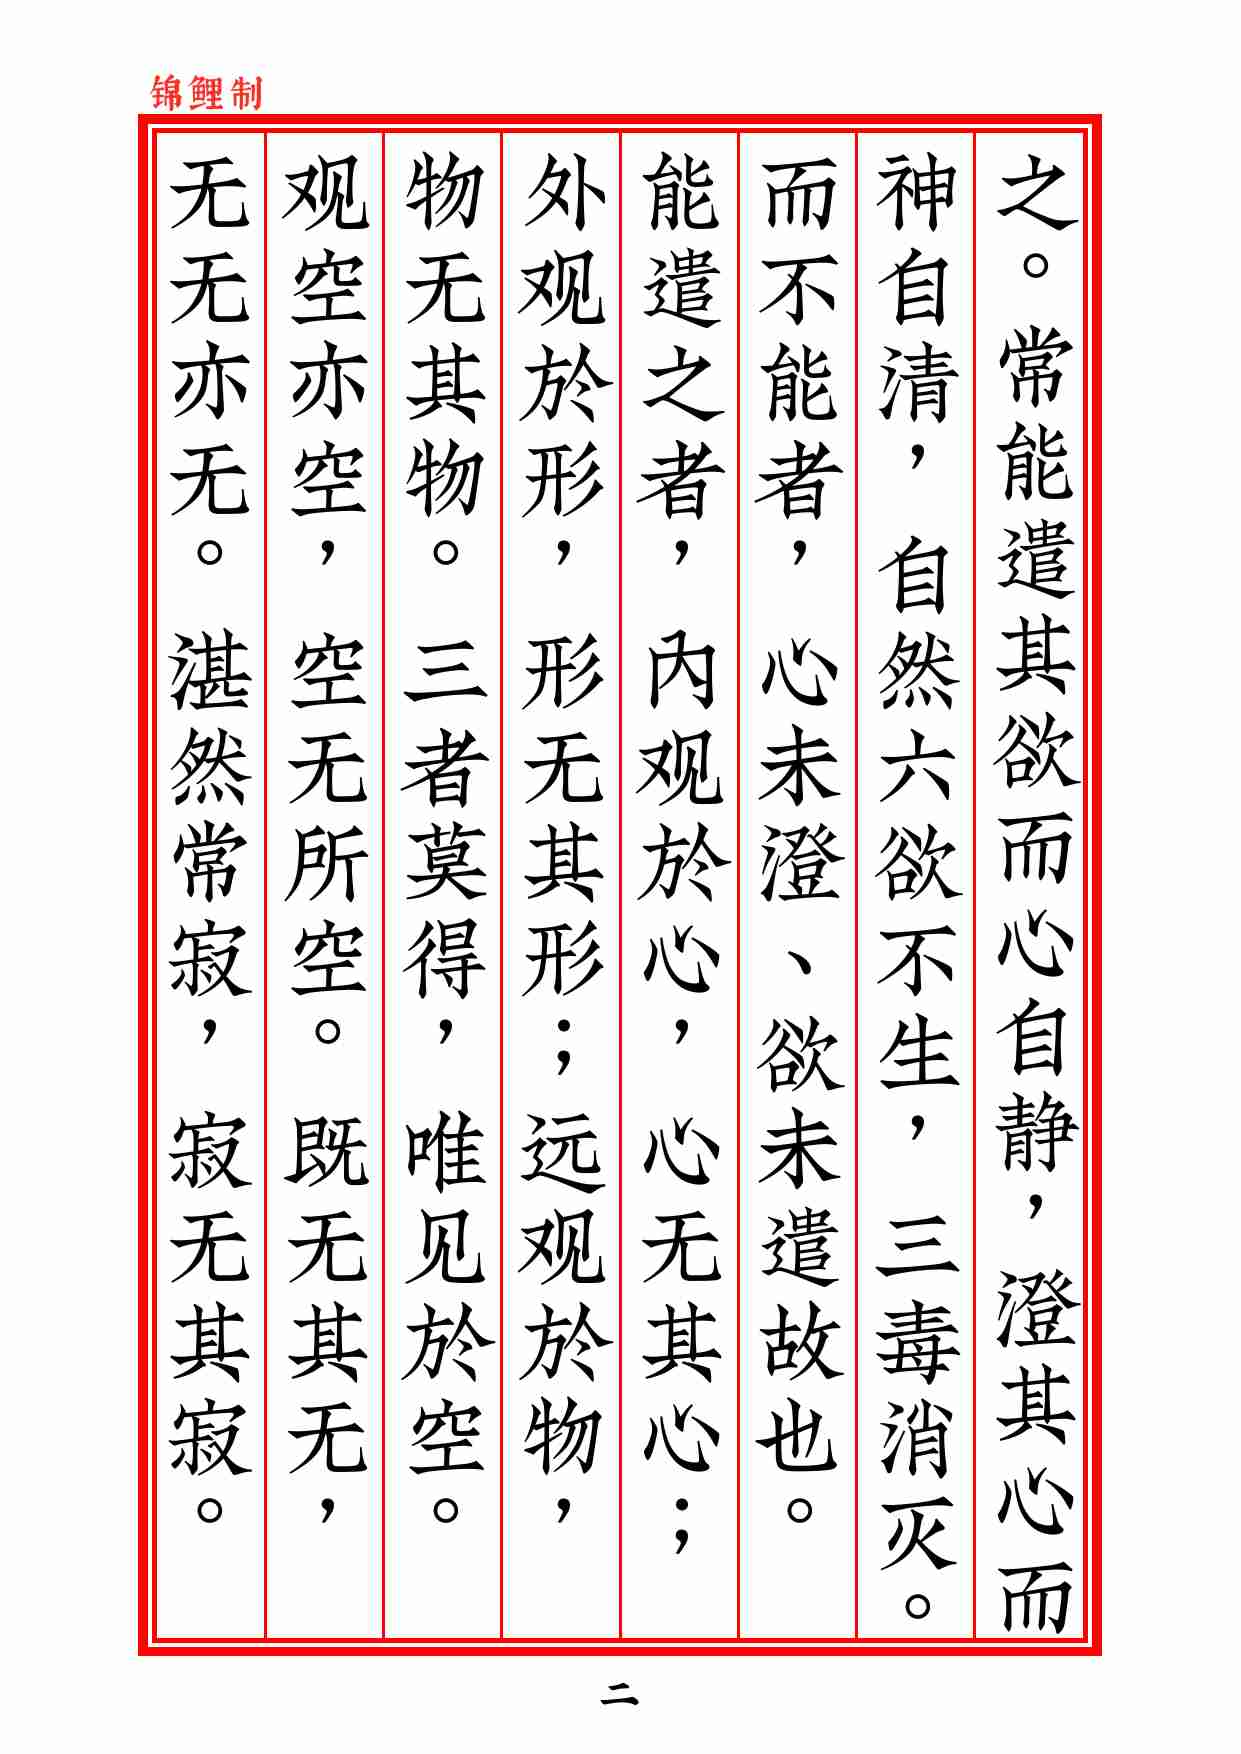 锦鲤制
之。常能遣其欲而心自静，澄其心而
神自清，自然六欲不生，三毒消灭。
而不能者，心未澄、欲未遣故也。
能遣之者，内观於心，心无其心；
外观於形，形无其形；远观於物，
物无其物。三者莫得，唯见於空。
观空亦空，空无所空。既无其无，
无无亦无。湛然常寂，寂无其寂。
二